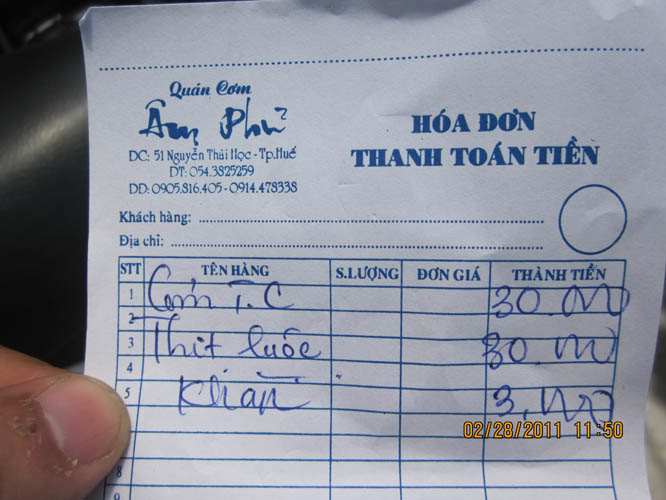 Quán Cơm
Âm Phủ
DC: 51 Nguyễn Thái Học - Tp.Huế
DT: 054.3825259
DD: 0905.816.405 - 0914.478338
HÓA ĐƠN
THANH TOÁN TIỀN
Khách hàng:
Địa chỉ:
STT TÊN HÀNG S.LƯỢNG ĐƠN GIÁ THÀNH TIỀN
1 Cơm T.C 30.000
2
3 Thịt luộc 30.000
4
5 Khăn 3.000
8
9
02/28/2011 11:50